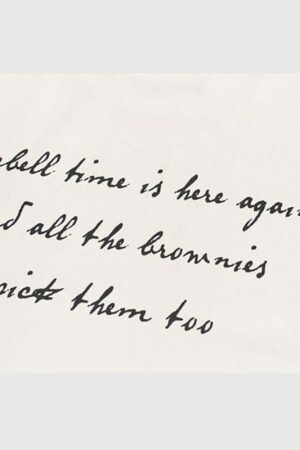 bell time is here again
d all the brownies
pick them too